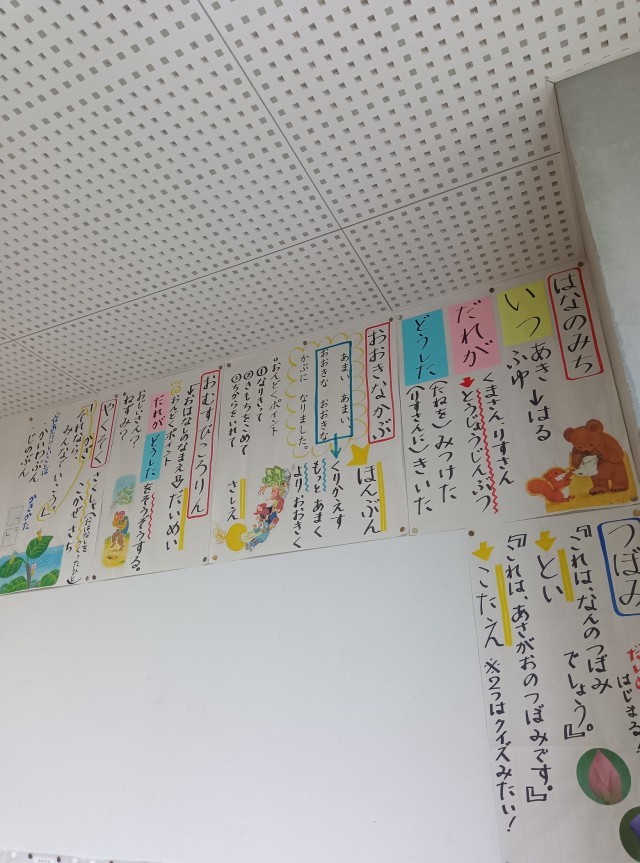 はなのみち
いつ
あき→はる
ふゆ
だれが
くまさん、りすさん
とうじょうじんぶつ
どうした
(たねを)みつけた
(りすさんに)きいた
おおきなかぶ
ほんぶん
あまい あまい、
おおきな おおきな
かぶに なりました。
くりかえす
もっと あまく
より おおきく
さしえ
おんどくポイント
①なりきって
②きもちをこめて
③ちからをいれて
おむすびころりん
だいめい
よおはなしのなまえ
おんどくポイント
だれが
どうした
をそうぞうする。
おじいさん?
ねずみ?
やくそく
さしえ
かぎ
「それなら、
みんなで いこう。」
かいわぶん
じのぶん
つぼみ
はじまる
とい
『これは、なんのつぼみ
でしょう。』
こたえ
『これは、あさがおのつぼみです。』
※2つはクイズみたい!